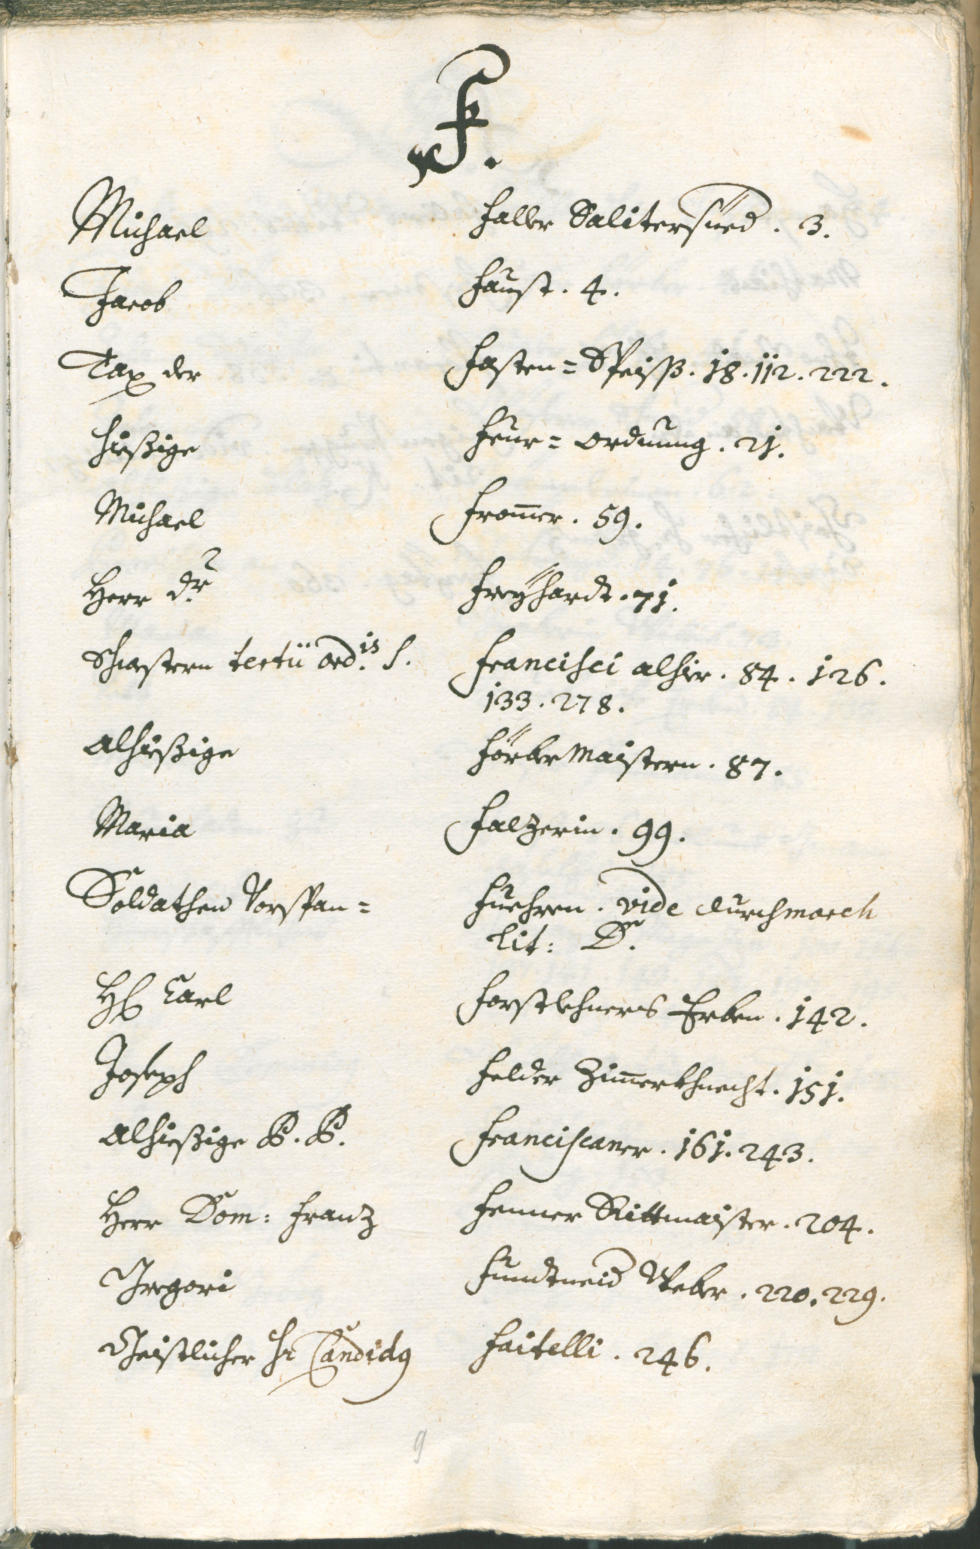 F.
Michael Faller Salitersiied. 3.
Jacob Faust. 4.
Tax der Fasten=Speiß. 18. 112. 222.
hießige Feur=ordnung. 21.
Michael Fromer. 59.
Herr Dr. Freÿhardt. 71.
Schwestern tertii ord:is S. Francisci alhir. 84. 126.
133. 278.
alhießige Förber Maistern. 87.
Maria Falzerin. 99.
Soldathen Vorspan= Fuehren. vide durchmarch
Lit: D.
H Carl Forstlehners Erben. 142.
Joseph Felder Zimerkhnecht. 151.
alhießige P. P. Franciscaner. 161. 243.
Herr Dom: Franz Fenner Rittmaister. 204.
Gregori Fundtneid Weber. 220. 229.
Geistlicher H Candidg Faitelli. 246.
9